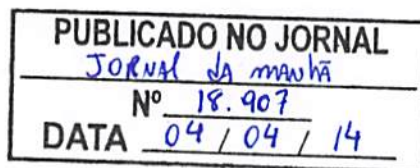 PUBLICADO NO JORNAL
JORNAL DA MANHÃ
Nº 18.907
DATA 04 / 04 / 14